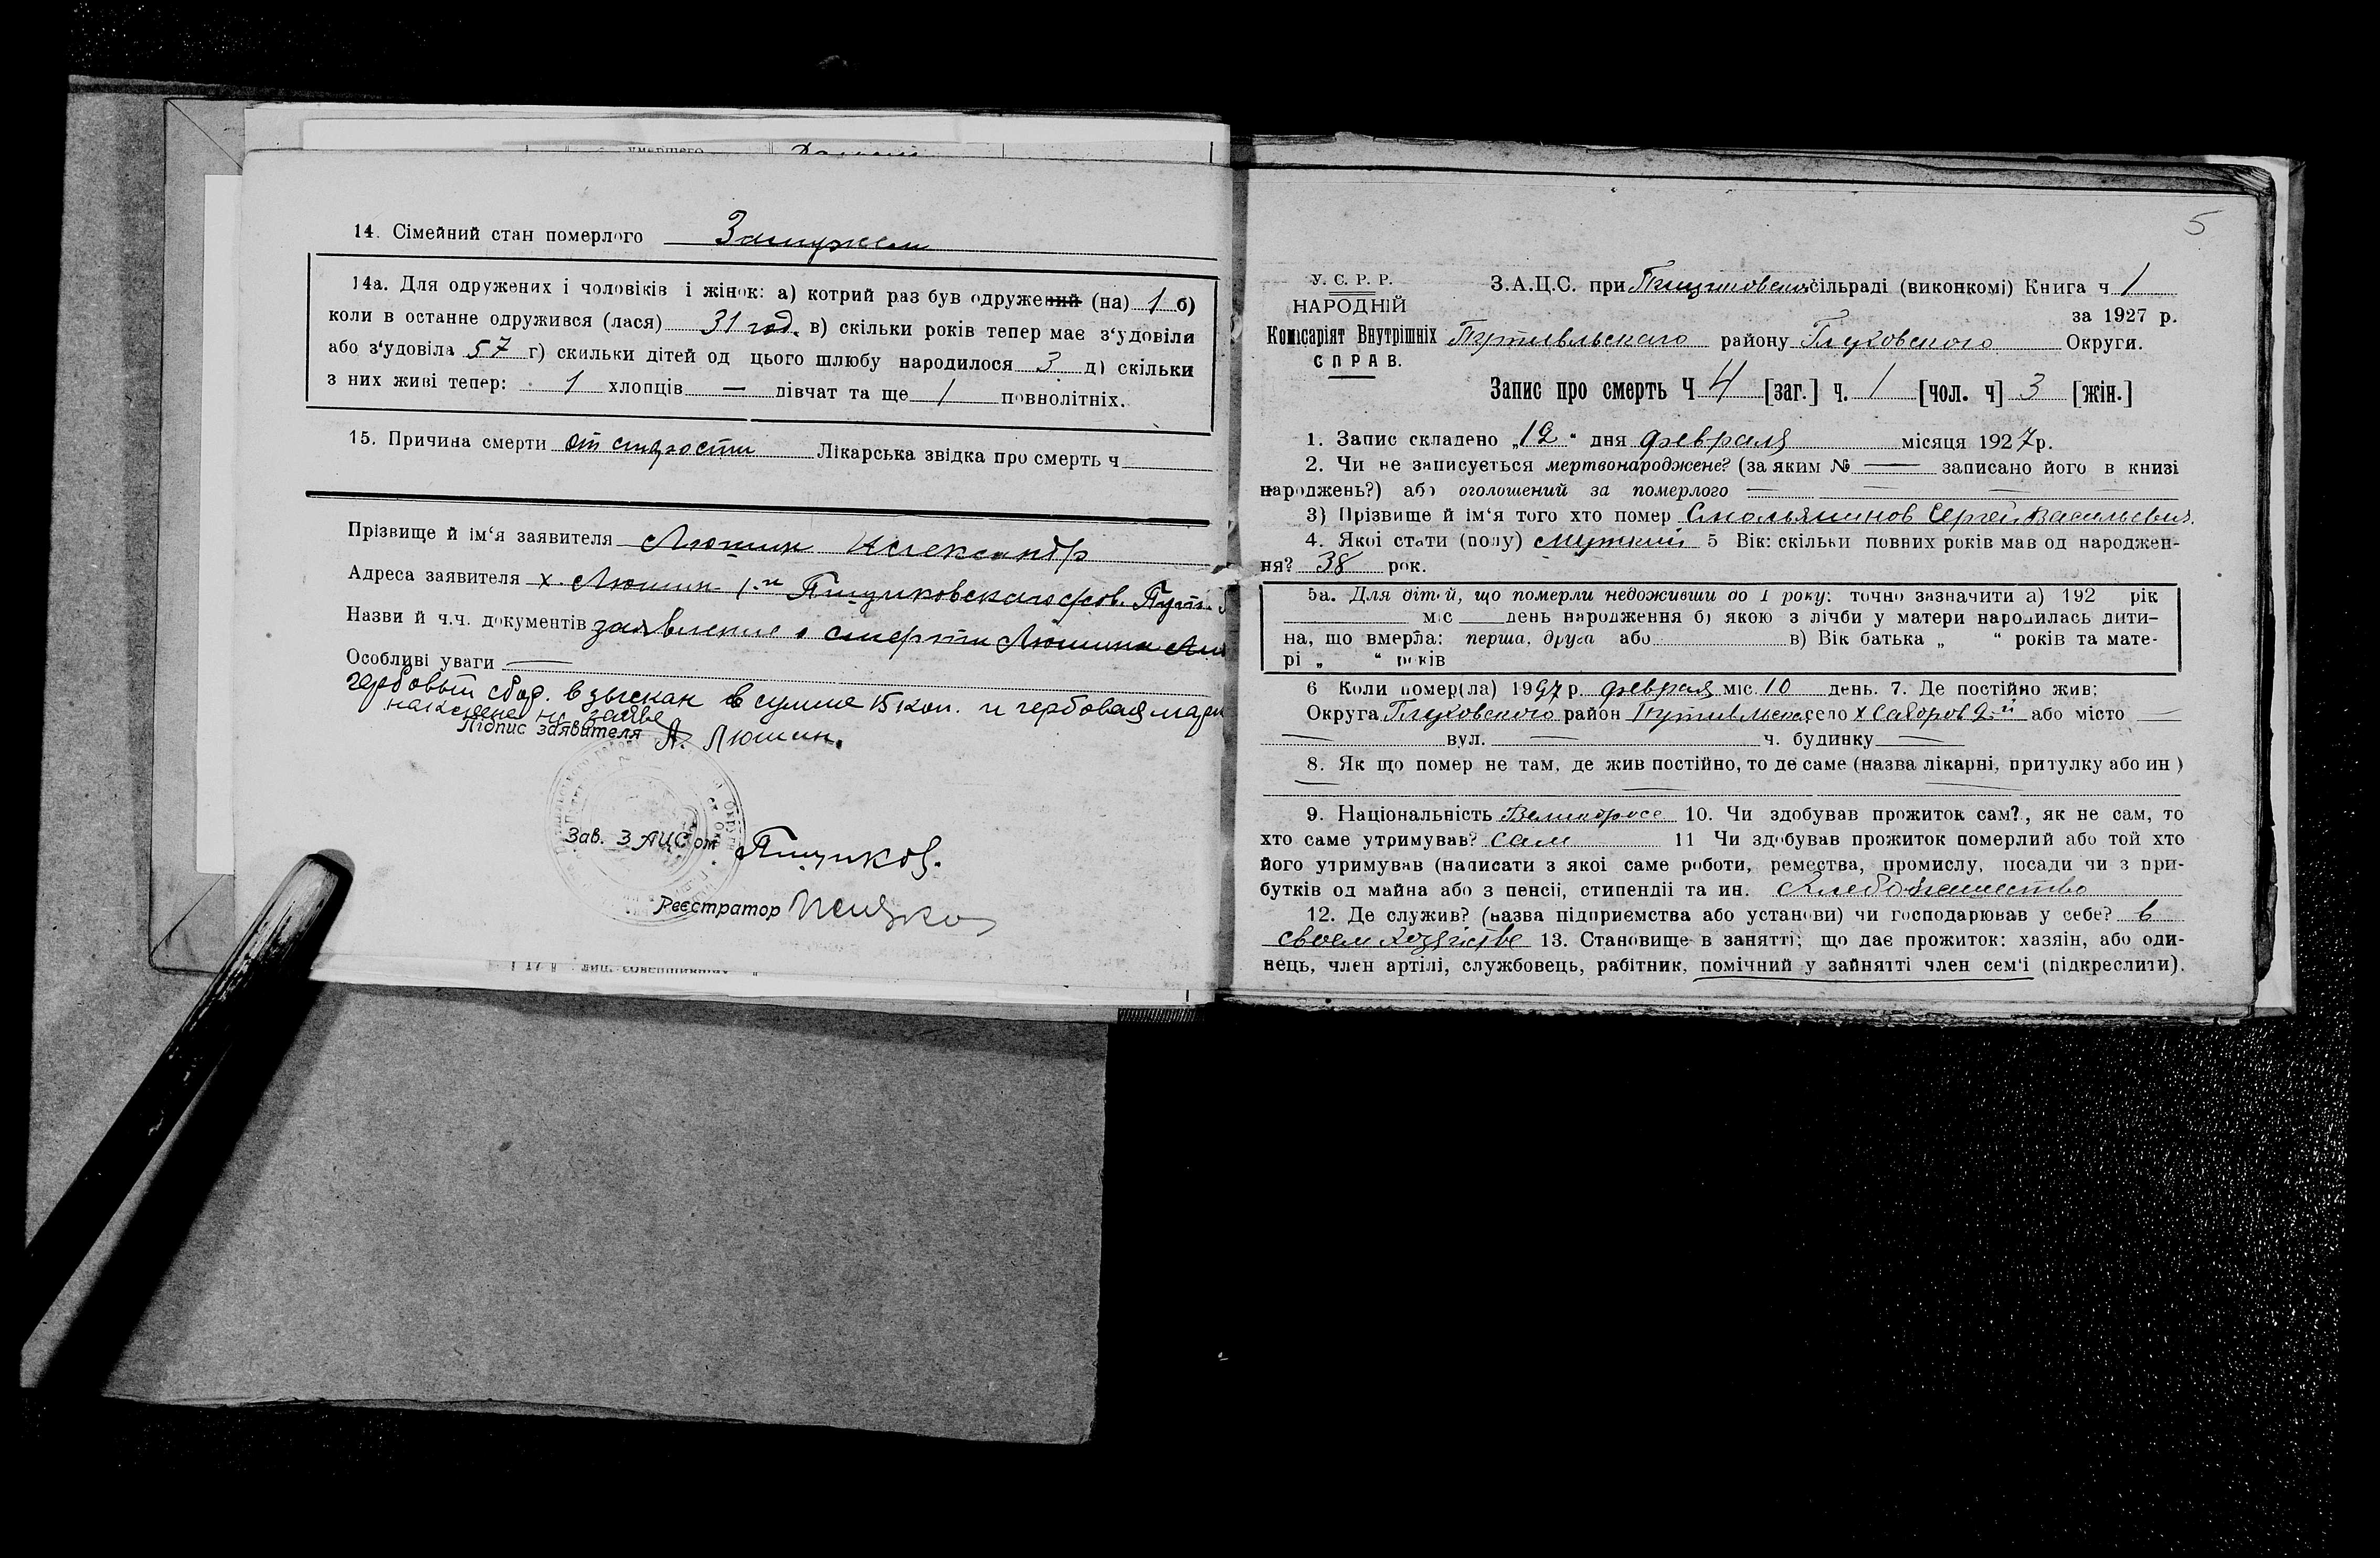 14. Сімейний стан померлого Замужем
14а. Для одружених і чоловіків і жінок: а) котрий раз був одружений (на) 1 б)
коли в останне одружився (лася) 31 год. в) скільки років тепер має з‘удовіли
або з‘удовіла 57 г) скильки дітей од цього шлюбу народилося 3 д) скільки
з них живі тепер: 1 хлопців — дівчат та ще 1 повнолітніх.
15. Причина смерти от старости Лікарська звідка про смерть ч
Прізвище й ім‘я заявителя Люшин Александр
Адреса заявителя х. Люшин Пищиковскаго с/сов. Пут.
Назви й ч.ч. документів заявление о смерти Люшина
Особливі уваги —
гербовый сбор. взыскан в сумме 15 коп. и гербовая марк
наклеена на заяве
Підпис заявителя А. Люшин.
Зав. З АЦС ом Пищиков.
Реєстратор
5
У. С. Р. Р.
НАРОДНІЙ
Комісаріят Внутрішніх
СПРАВ.
З.А.Ц.С. при Пищиковской сільраді (виконкомі) Книга ч 1
за 1927 р.
Путивльскаго району Глуховского Округи.
Запис про смерть Ч 4 [заг.] ч. 1 [чол. ч] 3 [жін.]
1. Запис складено „12“ дня февраля місяця 1927 р.
2. Чи не записується мертвонароджене? (за яким № — записано його в книзі
народжень?) або оголошений за померлого —
3) Прізвище й ім‘я того хто помер Смольянинов Сергей Васильевич.
4. Якої стати (полу) мужский 5 Вік: скільки повних років мав од народжен-
ня? 38 рок.
5а. Для дітей, що померли недоживши до 1 року: точно зазначити а) 192 рік
міс день народження б) якою з лічби у матери народилась дити-
на, що вмерла: перша, друга або в) Вік батька „ “ років та мате-
рі „ “ років
6 Коли помер(ла) 1927 р. февраля міс. 10 день. 7. Де постійно жив:
Округа Глуховского район Путивльск. село х Саборов 2й або місто —
— вул. — ч. будинку —
8. Як що помер не там, де жив постійно, то де саме (назва лікарні, притулку або ин )
9. Національність Великоросс 10. Чи здобував прожиток сам?, як не сам, то
хто саме утримував? Сам 11 Чи здобував прожиток померлий або той хто
його утримував (написати з якоі саме роботи, ремества, промислу, посади чи з при-
бутків од майна або з пенсії, стипендії та ин. Хлебопашество
12. Де служив? (назва підприемства або установи) чи господарював у себе? в
своем хозяйстве 13. Становище в занятті; що дає прожиток: хазяін, або оди-
нець, член артілі, службовець, рабітник, помічний у зайнятті член сем‘і (підкреслити).